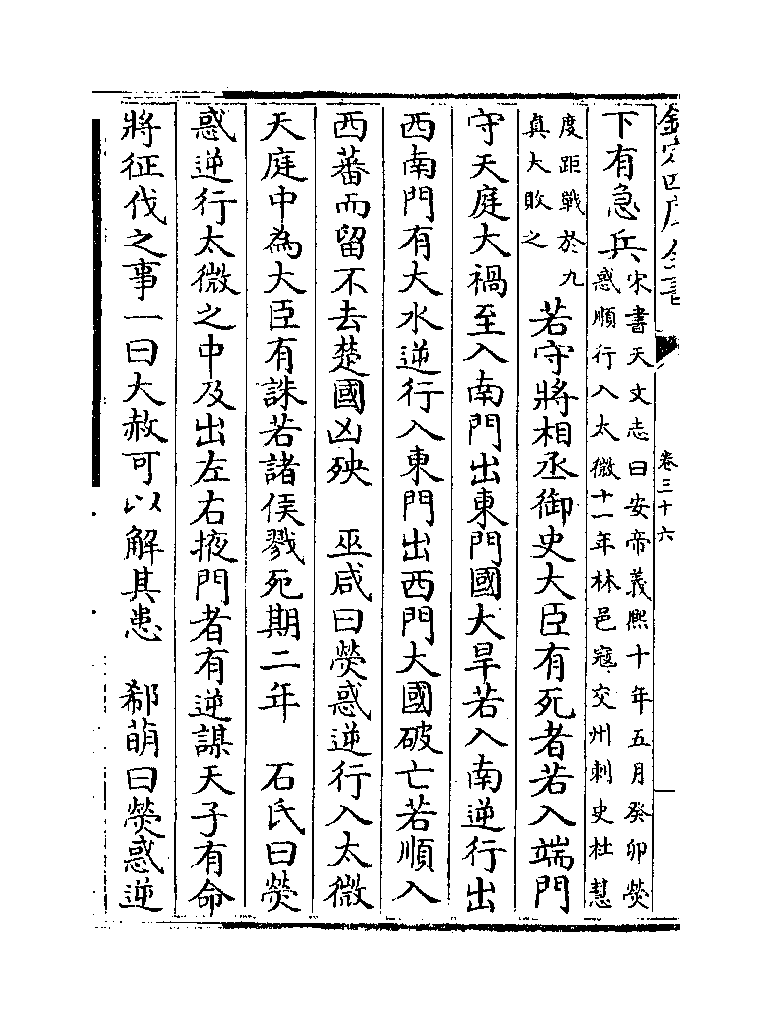 欽定四庫全書
卷三十六
下有急兵
宋書天文志曰安帝義熙十年五月癸卯熒
惑順行入太微十一年林邑寇交州刺史杜慧
度距戰於九
真大敗之
若守將相丞御史大臣有死者若入端門
守天庭大禍至入南門出東門國大旱若入南逆行出
西南門有大水逆行入東門出西門大國破亡若順入
西蕃而留不去楚國凶殃　巫咸曰熒惑逆行入太微
天庭中為大臣有誅若諸侯戮死期二年　石氏曰熒
惑逆行太微之中及出左右掖門者有逆謀天子有命
將征伐之事一曰大赦可以解其患　郗萌曰熒惑逆